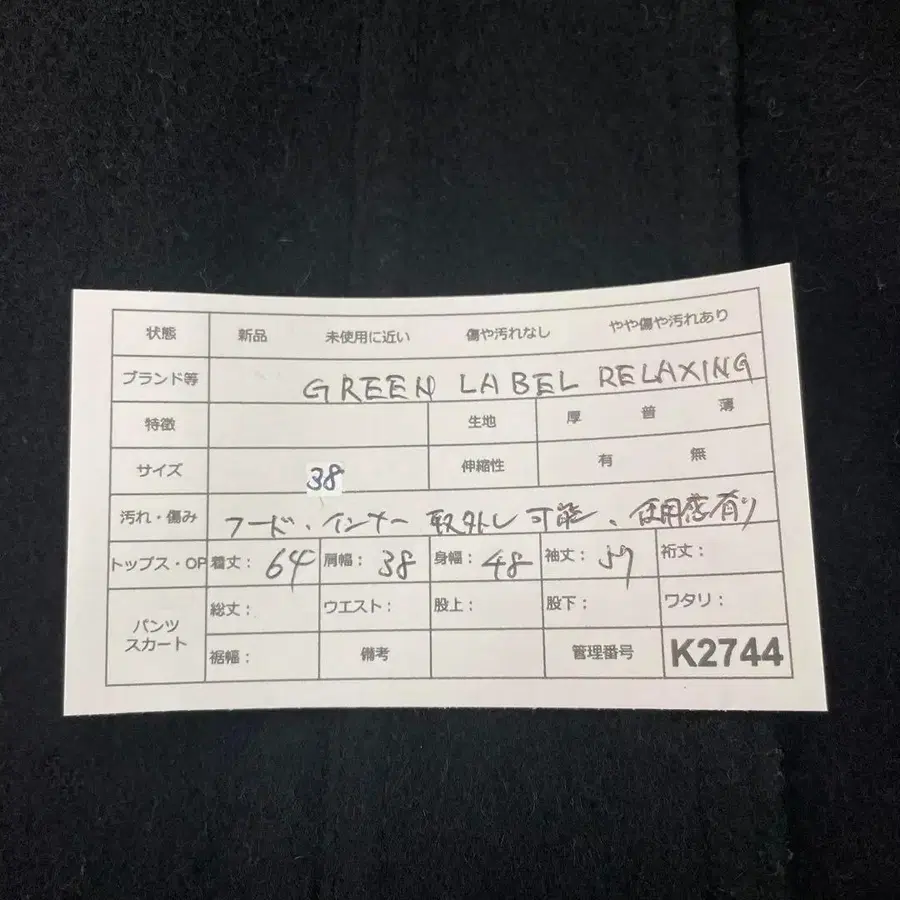 状態 新品 未使用に近い 傷や汚れなし やや傷や汚れあり
ブランド等 GREEN LABEL RELAXING
特徴 生地 厚 普 薄
サイズ 38 伸縮性 有 無
汚れ・傷み フード、インナー取外し可能、使用感有り
トップス・OP 着丈： 64 肩幅： 38 身幅： 48 袖丈： 57 裄丈：
パンツ スカート 総丈： ウエスト： 股上： 股下： ワタリ：
裾幅： 備考 管理番号 K2744